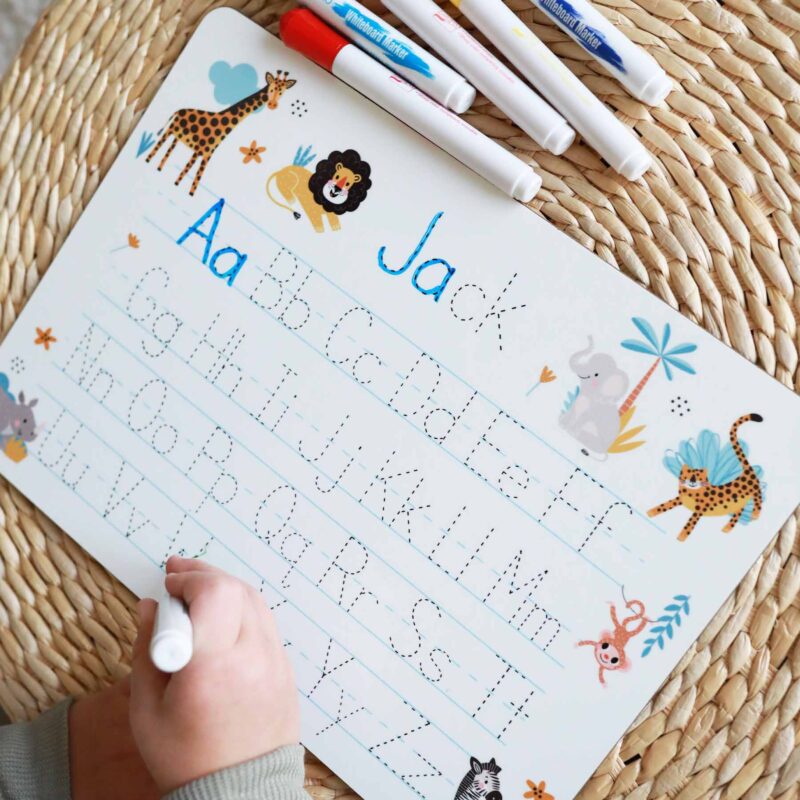 Whiteboard Marker
Whiteboard Marker
Jack
Aa Bb Cc Dd Ee Ff
Gg Hh Ii Jj Kk Ll Mm
Nn Oo Pp Qq Rr Ss Tt
Uu Vv Yy Zz